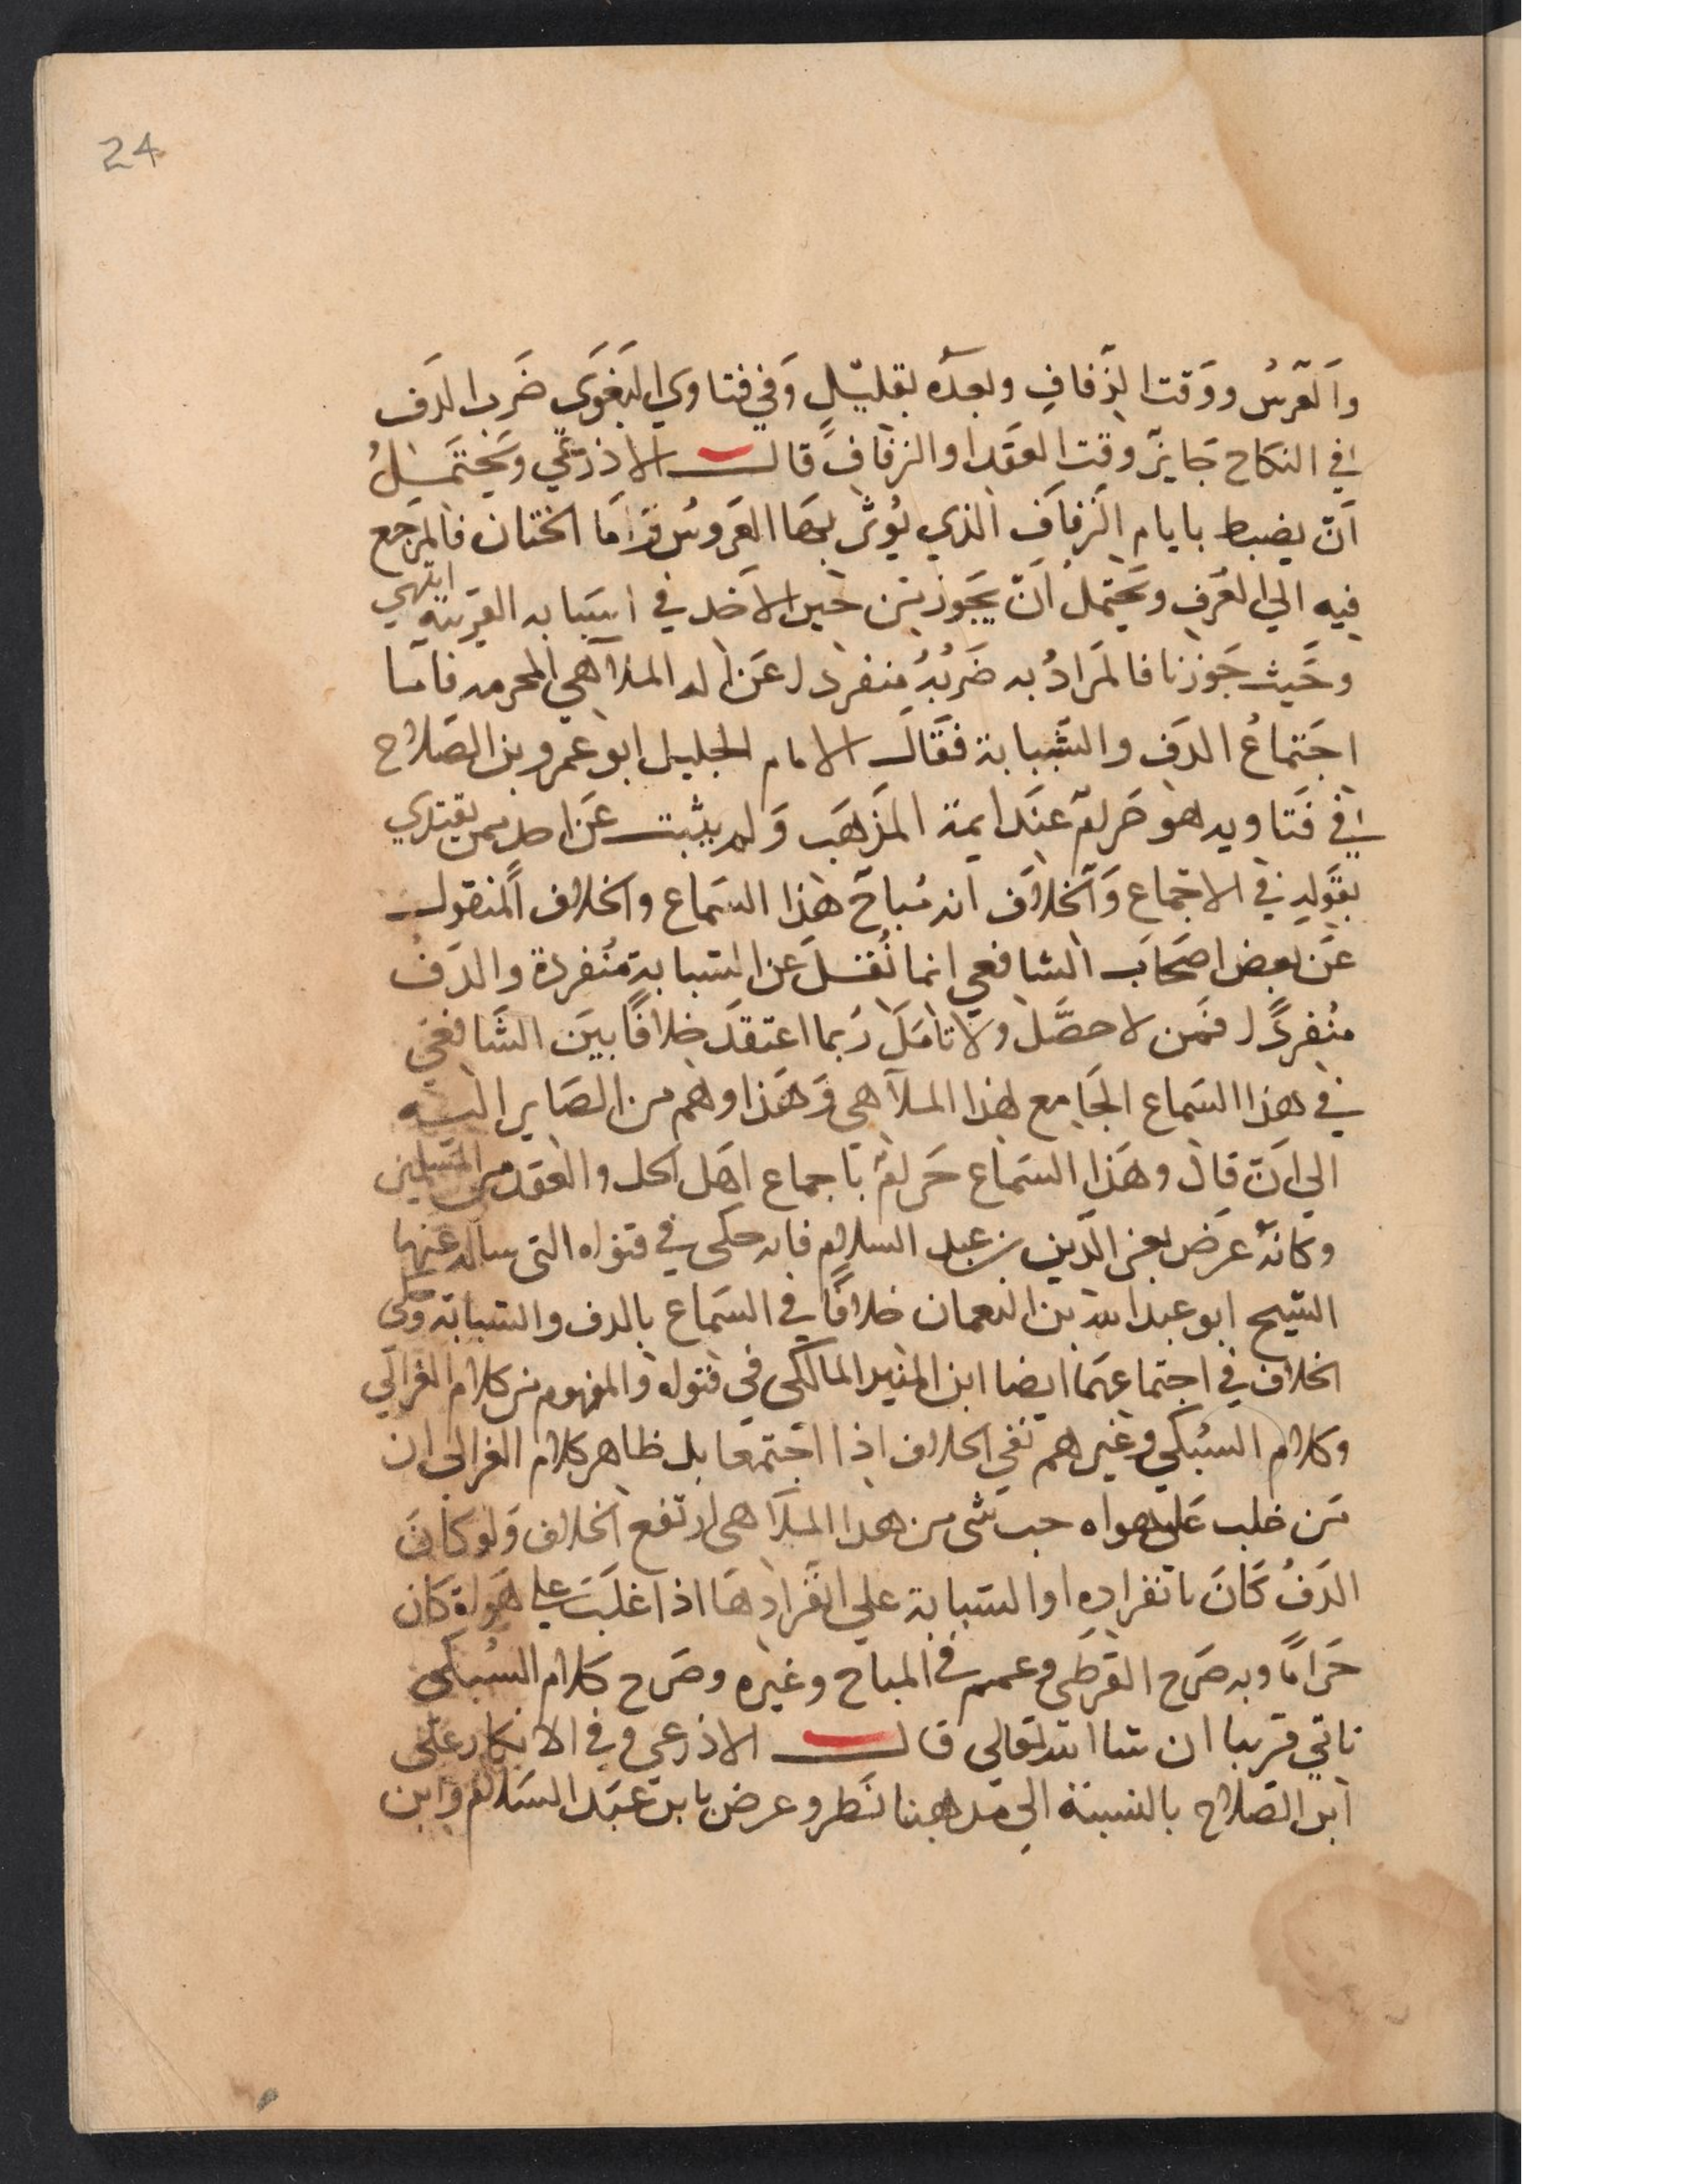 24
والعرس ووقت الزفاف وبعده بقليل وفي فتاوي البغوي ضرب الدف
في النكاح جايز وقت العقد او الزفاف قال الاذرعي ويحتمل
ان يضبط بايام الزفاف الذي يؤثر بها العروس واما الختان فالمرجع
فيه الي العرف ويحتمل ان يجوز من حين الاخذ في اسبابه القريبة انتهي
وحيث جوزنا فالمراد به ضربه منفردا عن اله الملاهي المحرمه فاما
اجتماع الدف والشبابة فقال الامام الجليل ابو عمرو بن الصلاح
في فتاويه هو حرام عند ايمة المذهب ولم يثبت عن احد ممن يقتدي
بقوله في الاجماع والخلاف انه مباح هذا السماع والخلاف المنقول
عن بعض اصحاب الشافعي انما نقل عن الشبابة منفردة والدف
منفردا فمن لا حصل ولا تامل ربما اعتقد خلافا بين الشافعي
في هذا السماع الجامع هذا الملاهي وهذا وهم من الصاير اليه
الي ان قال وهذا السماع حرام باجماع اهل الحل والعقد من المسلمين
وكانه عرض بعز الدين بن عبد السلام فانه حكى في فتواه التي ساله عنها
الشيخ ابو عبد الله بن النعمان خلافا في السماع بالدف والشبابة وحكى
الخلاف في اجتماعهما ايضا ابن المنير المالكي في فتواه والمفهوم من كلام الغزالي
وكلام السبكي وغيرهم نفي الخلاف اذا اجتمعا بل ظاهر كلام الغزالي ان
من غلب على هواه حب شى من هذا الملاهي ارتفع الخلاف ولو كان
الدف كان بانفراده او الشبابة علي انفرادها اذا غلبت علي هواه كان
حراما وبه صرح القرطبي وعمم في المباح وغيره وصرح كلام السبكي
ناتي قريبا ان شا الله تعالي قال الاذرعي وفي الانكار على
ابن الصلاح بالنسبة الي مذهبنا نظر وعرض بابن عبد السلام وابن